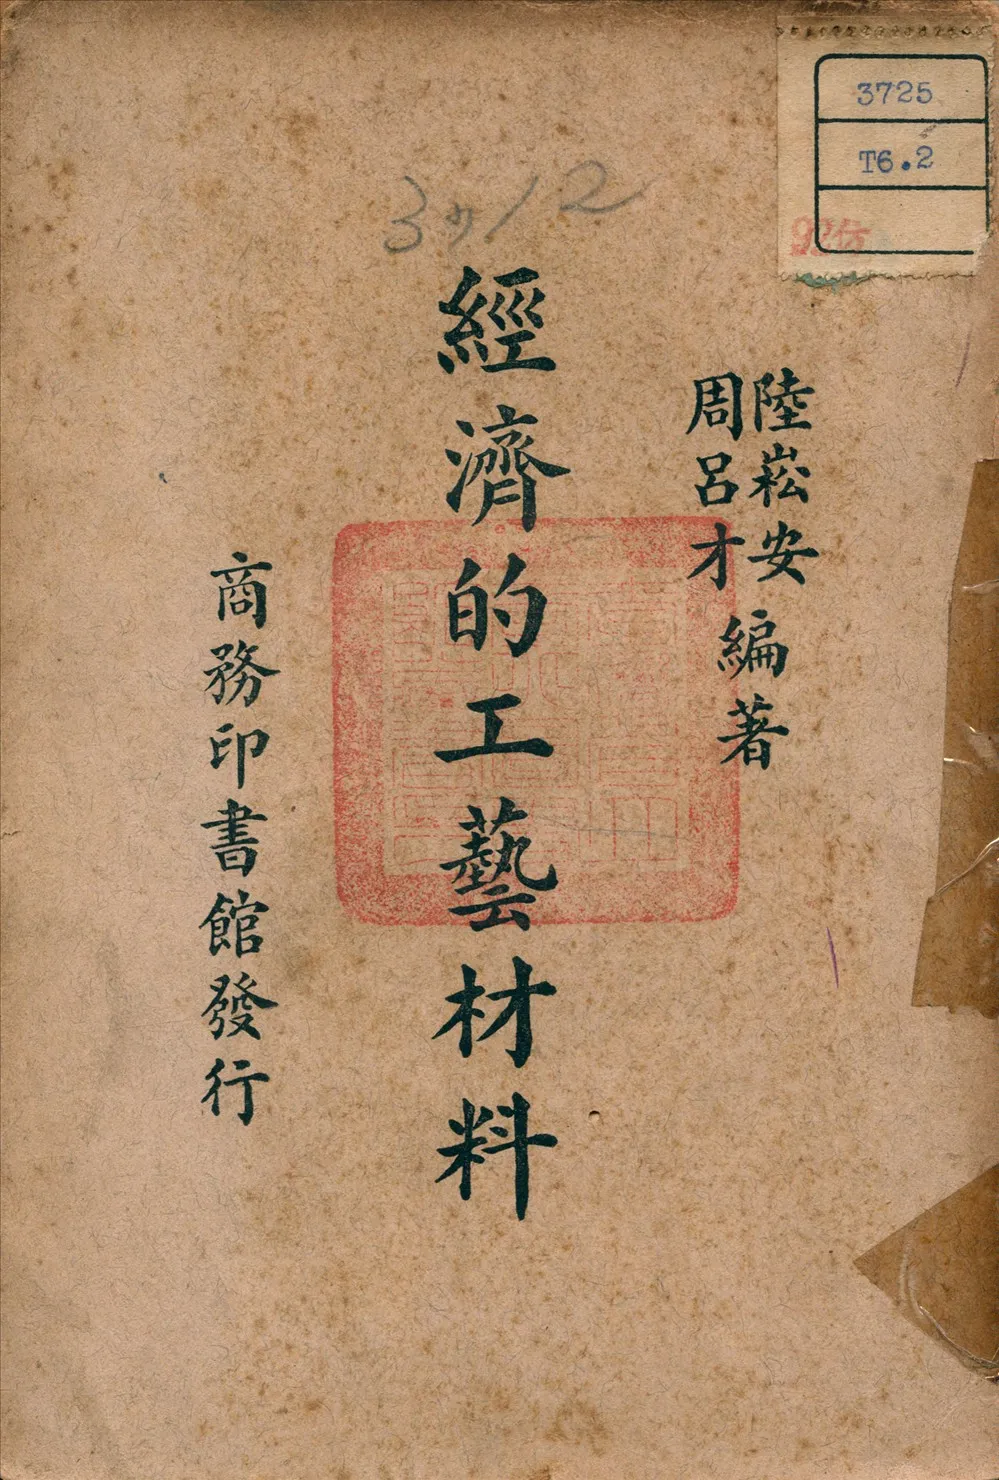 3725
T6.2
陸崧安
周呂才
編著
經濟的工藝材料
商務印書館發行